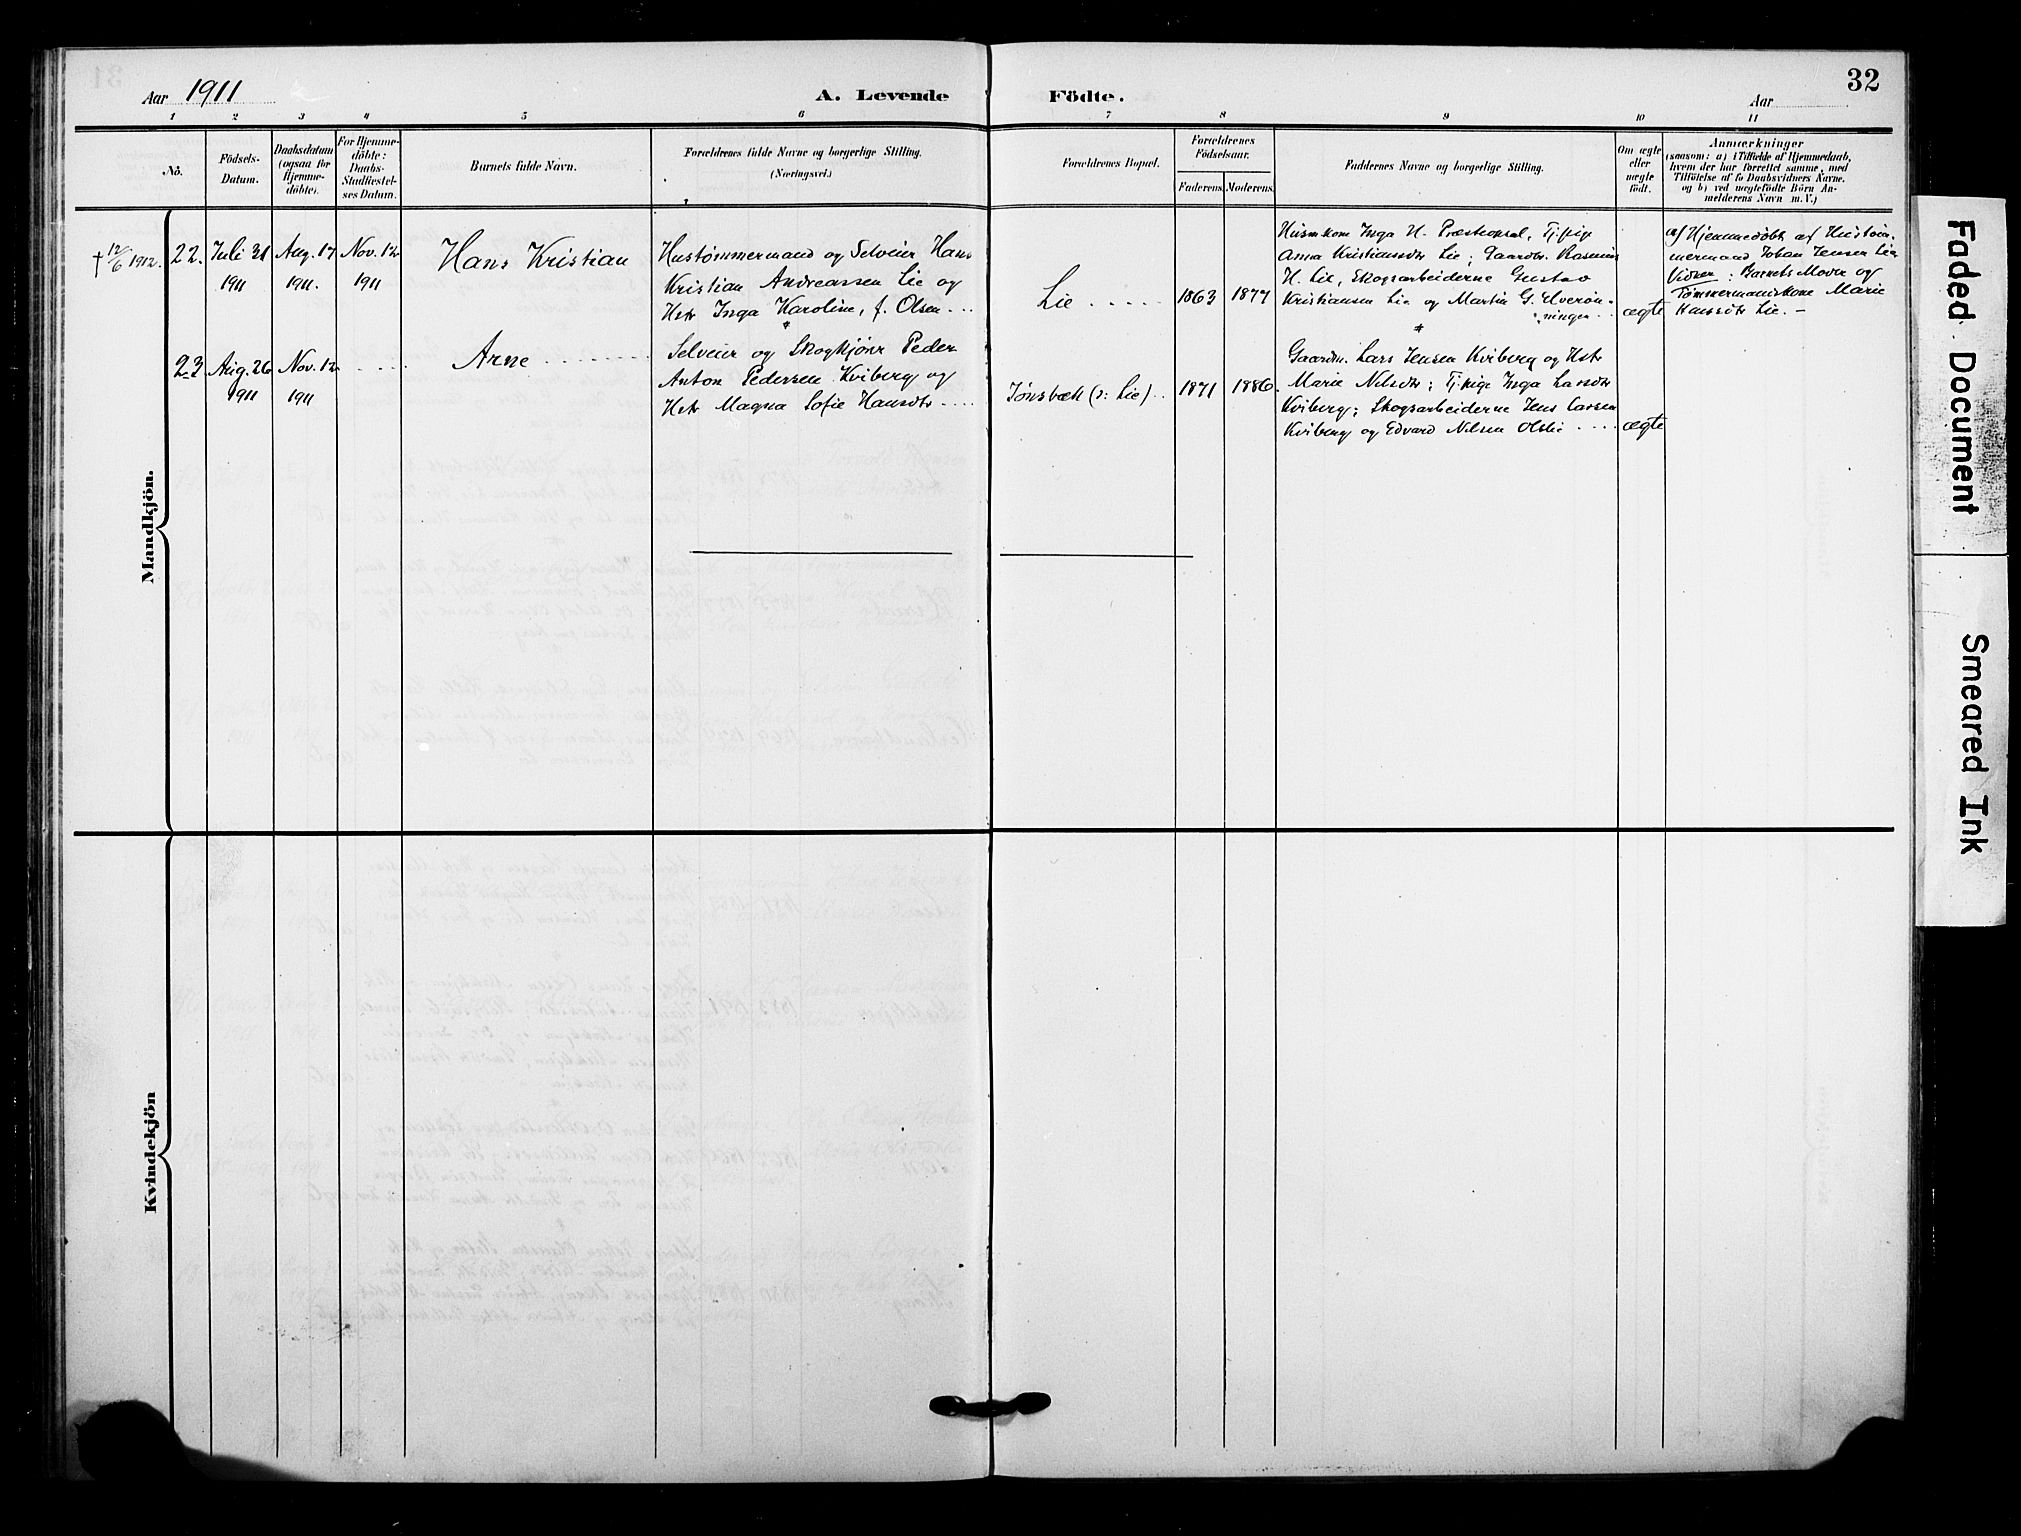 Aar 1911
A. Levende Födte.
Aar
32
1 2 3 4 5 6 7 8 9 10 11
No.
Födsels-
Datum.
Daabsdatum
(ogsaa for
Hjemme-
döbte).
For Hjemme-
döbte:
Daabs-
Stadfæstel-
ses Datum.
Barnets fulde Navn.
Forældrenes fulde Navne og borgerlige Stilling.
(Næringsvei.)
Forældrenes Bopæl.
Forældrenes
Födselsaar.
Faderens. Moderens.
Faddernes Navne og borgerlige Stilling.
Om ægte
eller
uægte
födt.
Anmærkninger
(saasom: a) i Tilfælde af Hjemmedaab,
hvem der har forrettet samme, med
Tilföielse af to Daabsvidners Navne.
og b) ved uægtefödte Börn An-
melderens Navn m. V.)
Mandkjön.
† 12/6 1912.
22.
Juli 31
1911
Aug. 17
1911.
Nov. 12
1911
Hans Kristian
Hustømmermand og Selveier Hans
Kristian Andreassen Lie og
Hstr Inga Karoline, f. Olsen
Lie
1863
1877
Husmkone Inga H. Præstegsal, Tj.pig
Anna Kristiansdtr Lie; Gaardbr. Rasmus
H. Lie, Skogsarbeiderne Gustav
Kristiansen Lie og Martin G. Elverøn-
ningen
ægte
a) Hjemmedøbt af Hustøm-
mermand Johan Jensen Lie
Vidner: Barnets Moder og
Tømmermandskone Marie
Hansdtr Lie. —
23
Aug. 26
1911
Nov. 12
1911
Arne
Selveier og Skogkjører Peder
Anton Pedersen Kviberg og
Hstr Magna Sofie Hansdtr
Jønsbæk (o: Lie)
1871
1886.
Gaardm. Lars Jensen Kviberg og Hstr
Marie Nilsdtr; Tj.pige Inga Larsdtr
Kviberg; Skogsarbeiderne Jens Larsen
Kviberg og Edvard Nilsen Olslie
ægte
Kvindekjön
Faded Document
Smeared Ink